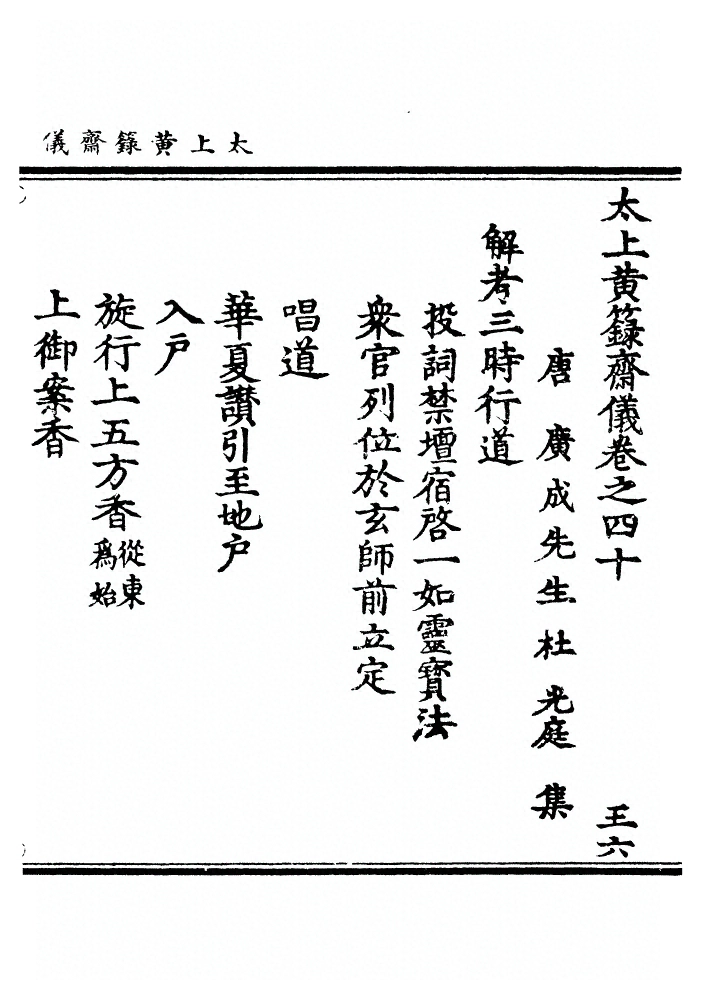 太上黄籙齋儀
太上黄籙齋儀卷之四十 王六
唐廣成先生杜光庭集
解考三時行道
投詞禁壇宿啓一如靈寶法
衆官列位於玄師前立定
唱道
華夏讃引至地户
入户
旋行上五方香從東爲始
上御案香